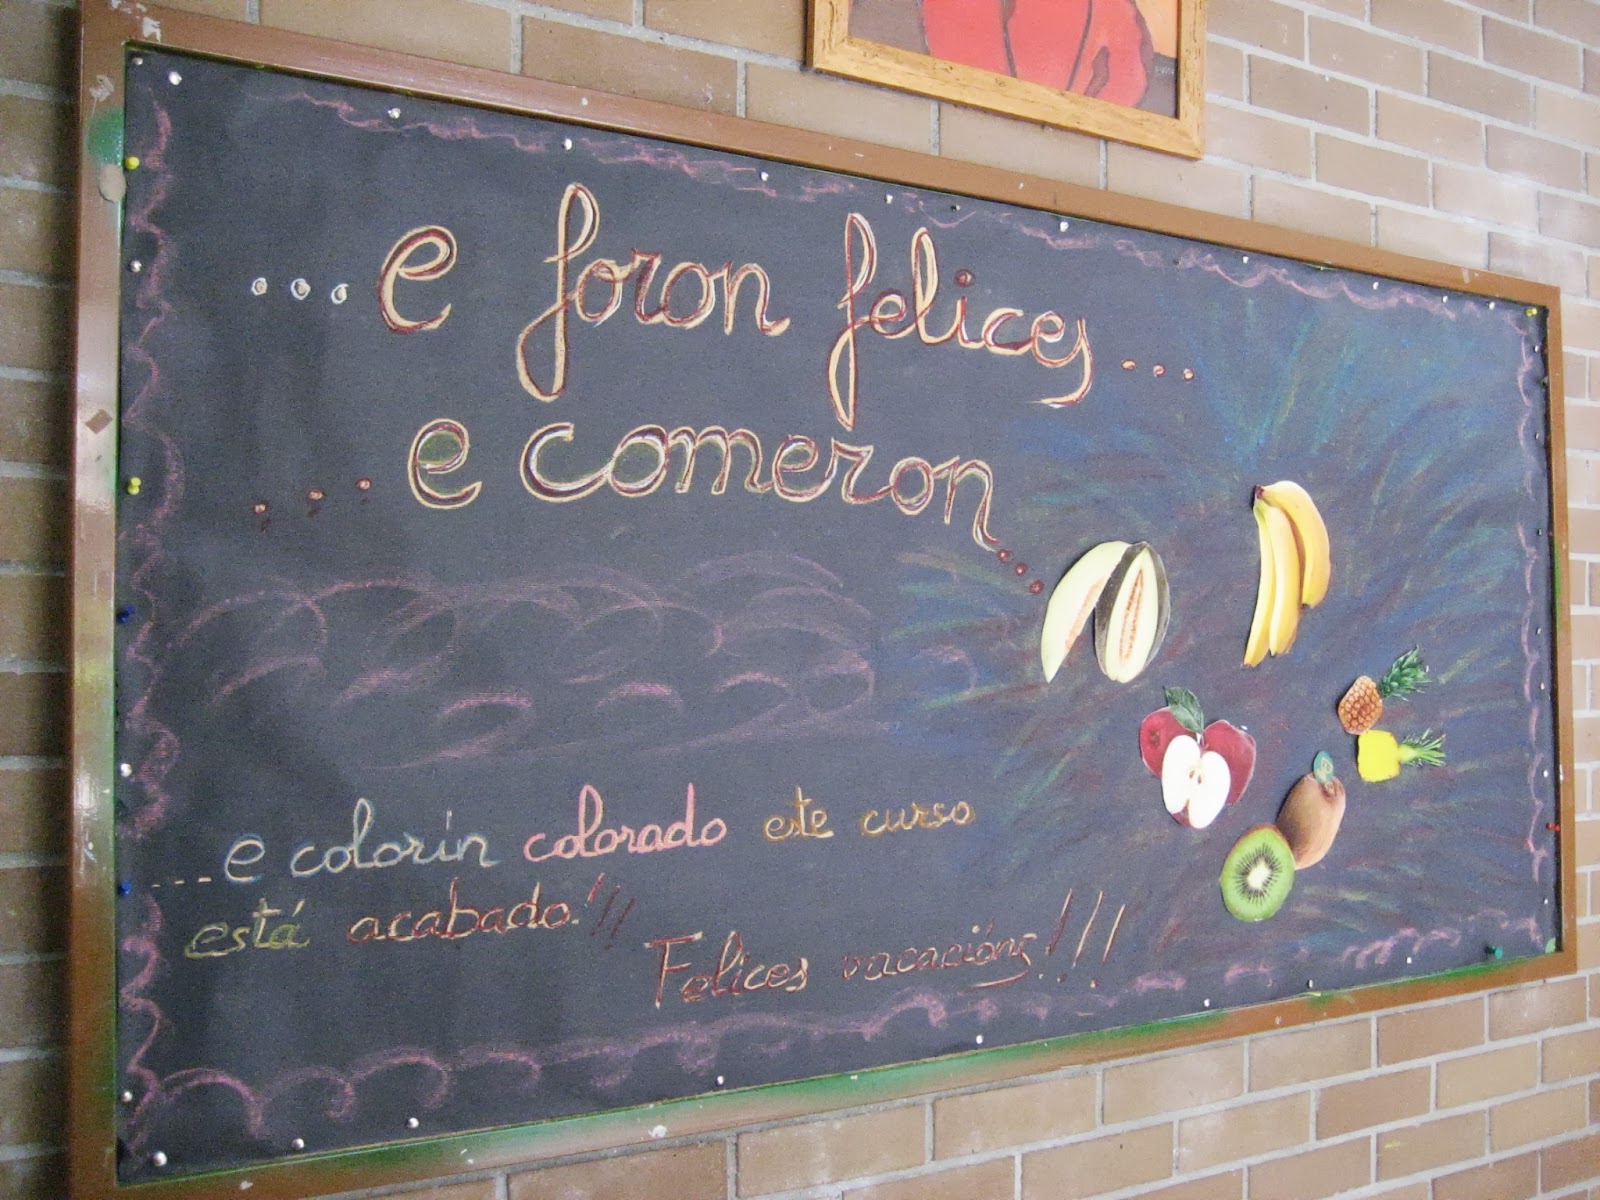 ...e foron felices...
...e comeron...
....e colorín colorado este curso
está acabado!!!
Felices vacacións!!!